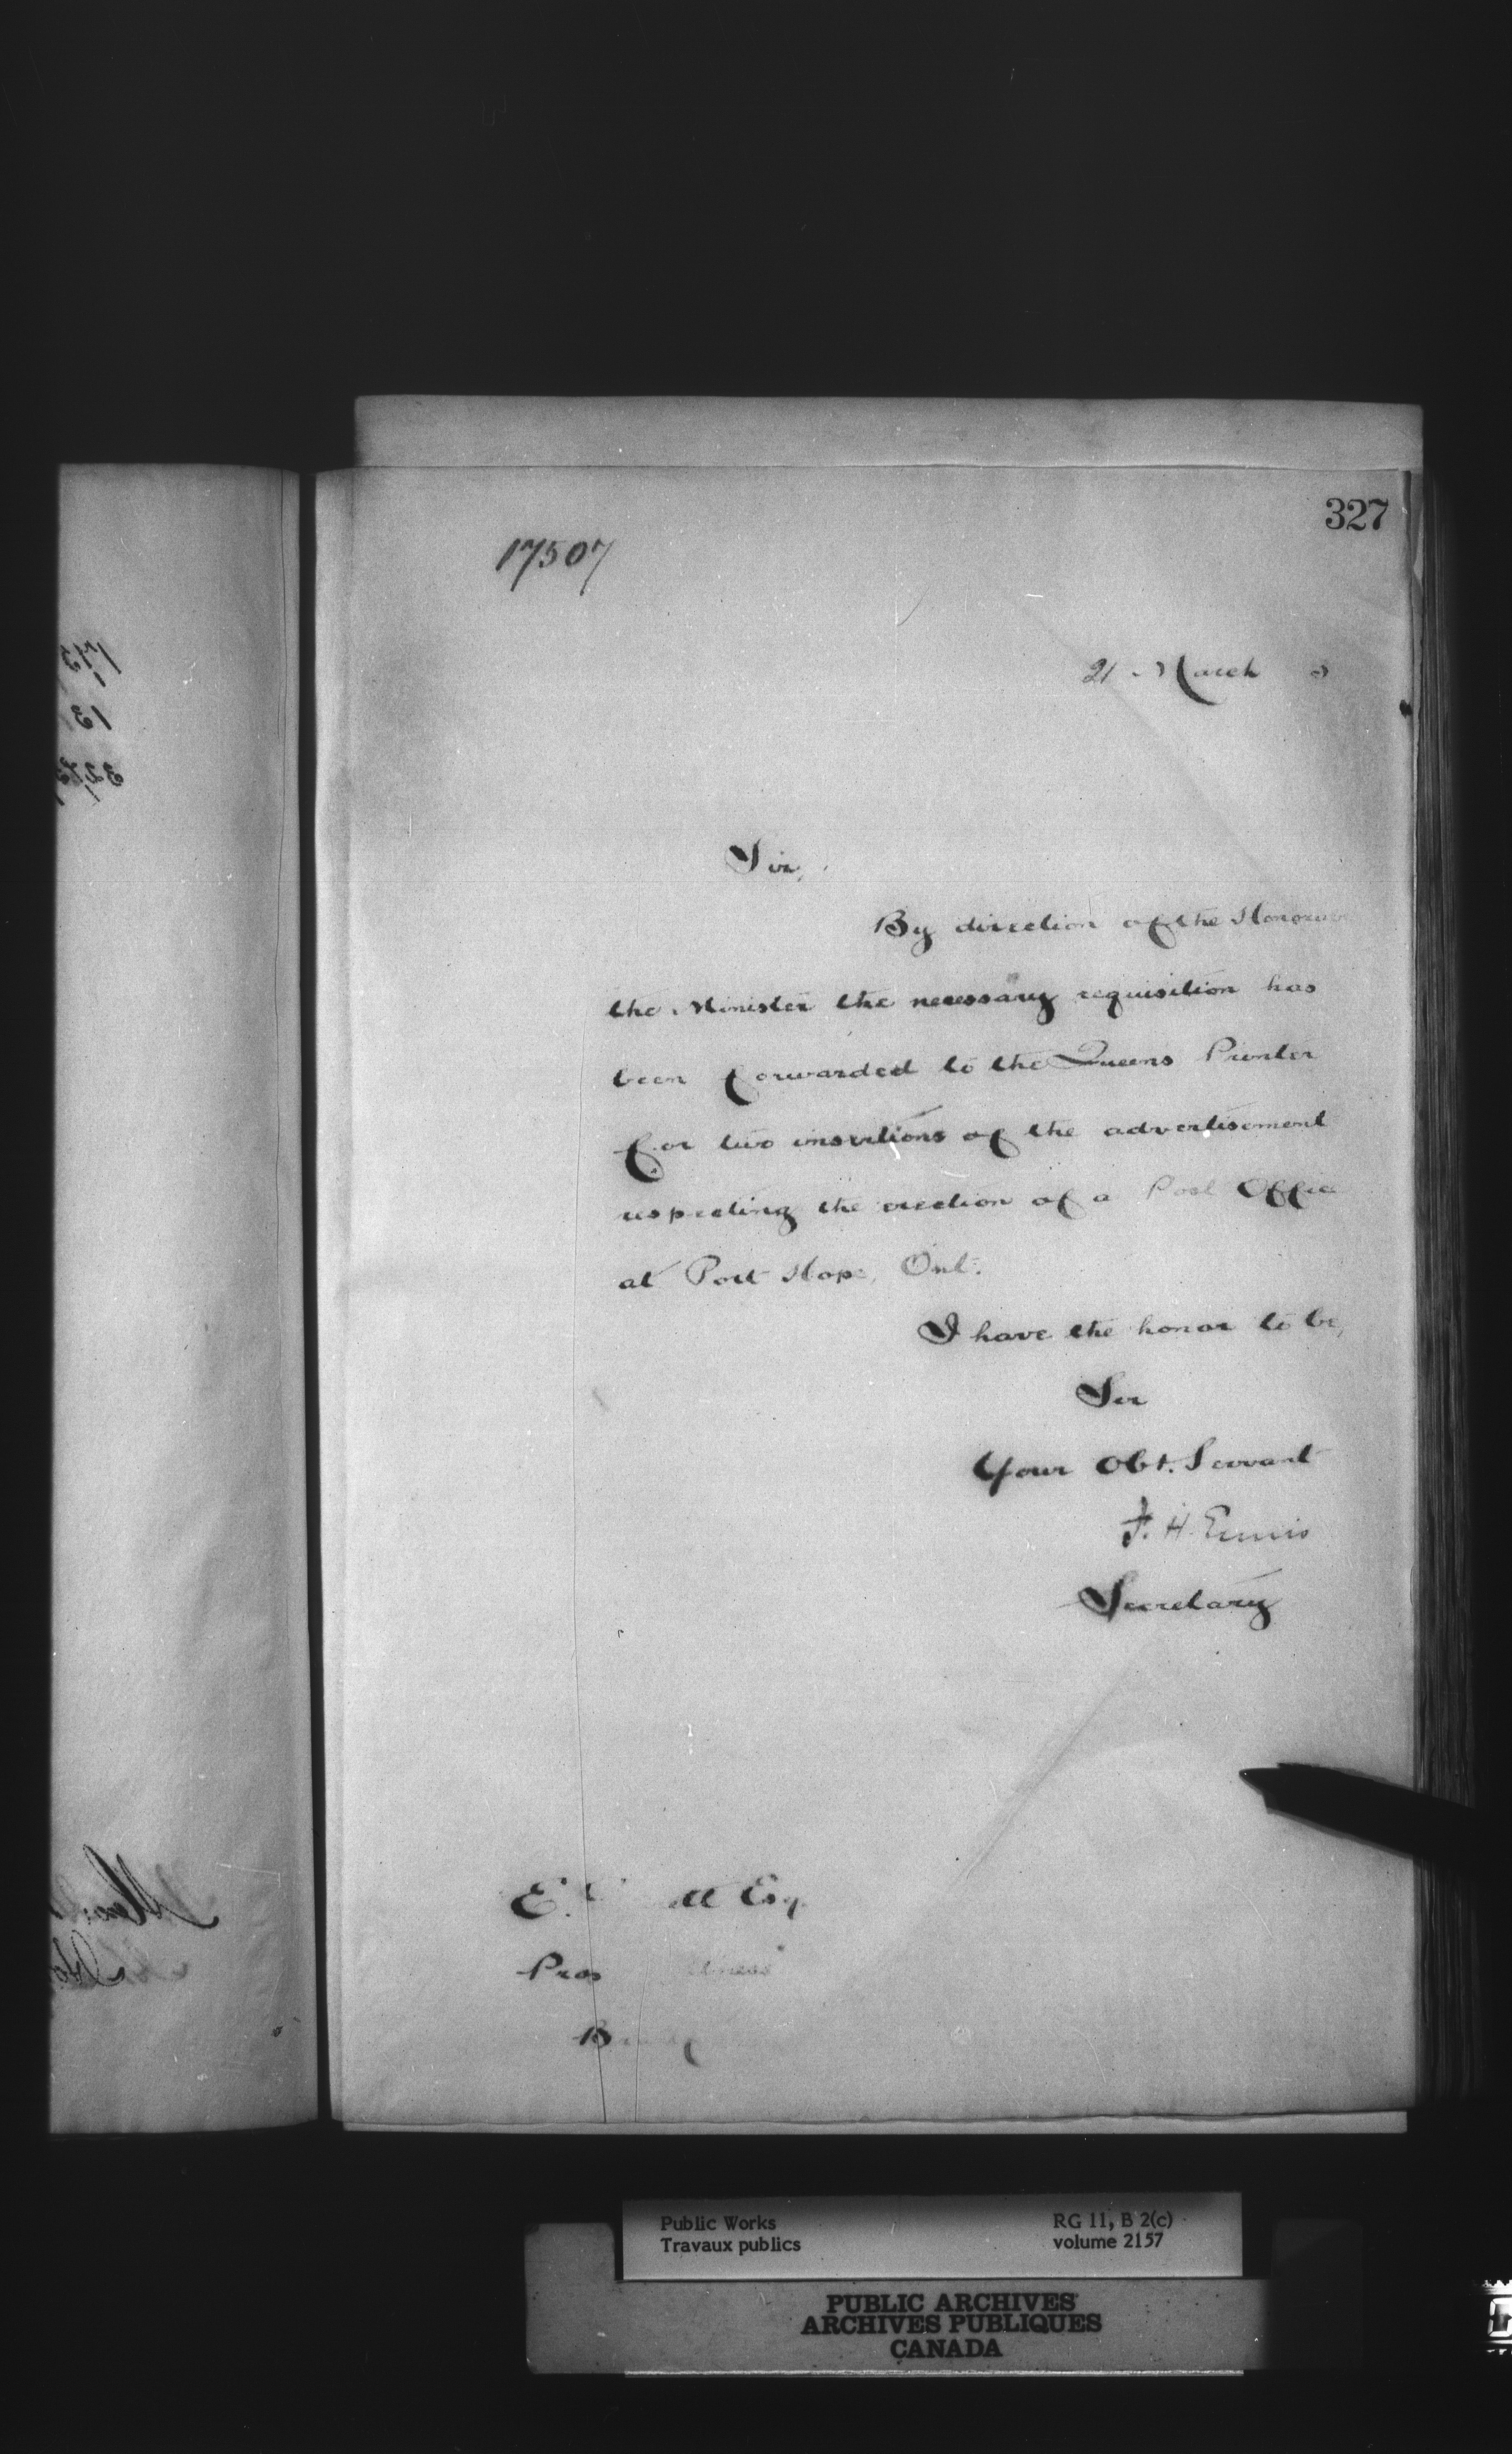 327
17507
21 March
Sir,
By direction of the
the Minister the necessary requisition has
been forwarded to the Queens Printer
for two insertions of the advertisement
respecting the erection of a Post Office
at Port Hope, Ont.
I have the honor to be,
Sir
Your Obt. Servant
F. H. Ennis
Secretary
E. Esq.
Public Works
Travaux publics
RG 11, B 2(c)
volume 2157
PUBLIC ARCHIVES
ARCHIVES PUBLIQUES
CANADA